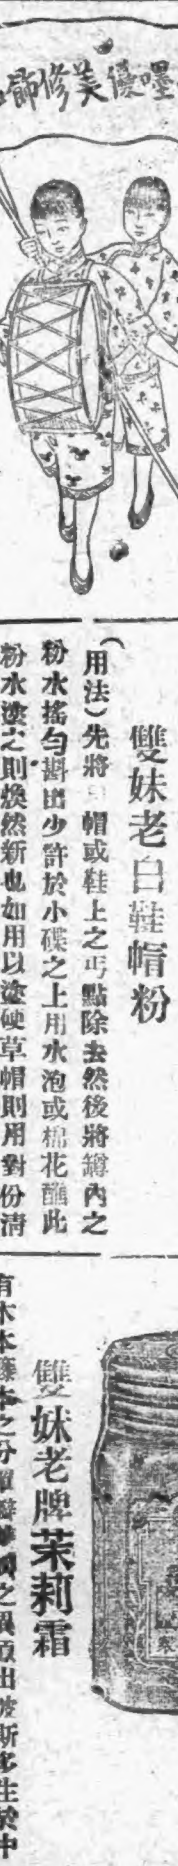 飾修美優嚜
雙妹老白鞋帽粉
（用法）先將 帽或鞋上之丐點除去然後將罇內之
粉水搖勻斟出少許於小碟之上用水泡或棉花蘸此
粉水塗之則煥然新也如用以塗硬草帽則用對份清
雙妹老牌茉莉霜
有木本藤本之分